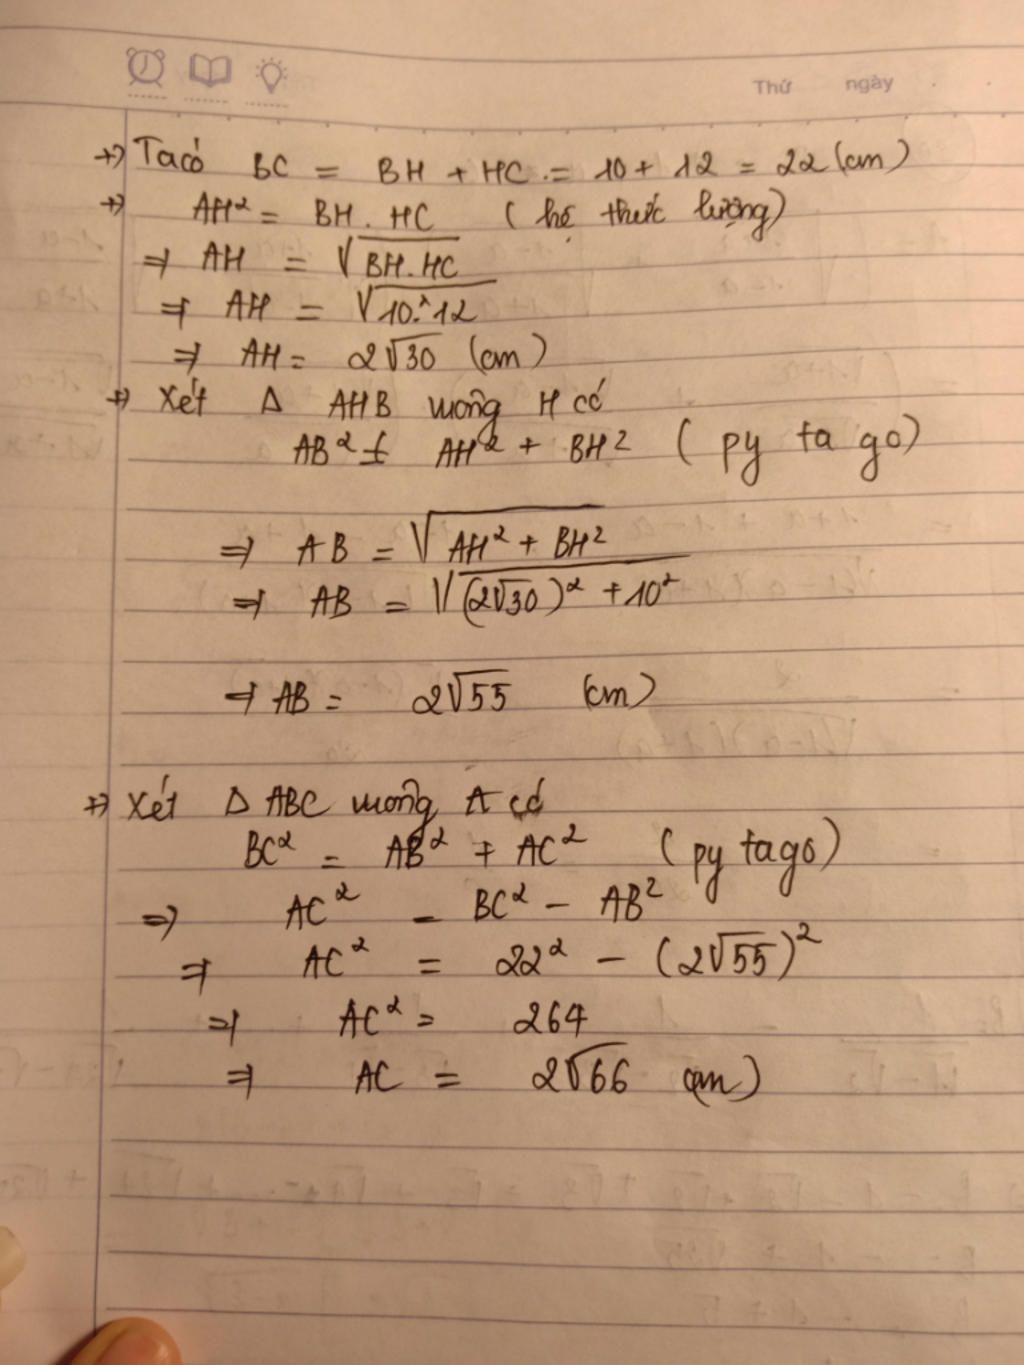 Thứ ngày
+) Ta có BC = BH + HC = 10 + 12 = 22 (cm)
+) AH² = BH . HC ( hệ thức lượng)
=> AH = √BH.HC
=> AH = √10.12
=> AH = 2√30 (cm)
+) Xét Δ AHB vuông H có
AB² = AH² + BH² ( py ta go)
=> AB = √AH² + BH²
=> AB = √(2√30)² + 10²
=> AB = 2√55 (cm)
+) Xét Δ ABC vuông A có
BC² = AB² + AC² ( py tago)
=> AC² = BC² - AB²
=> AC² = 22² - (2√55)²
=> AC² = 264
=> AC = 2√66 cm)